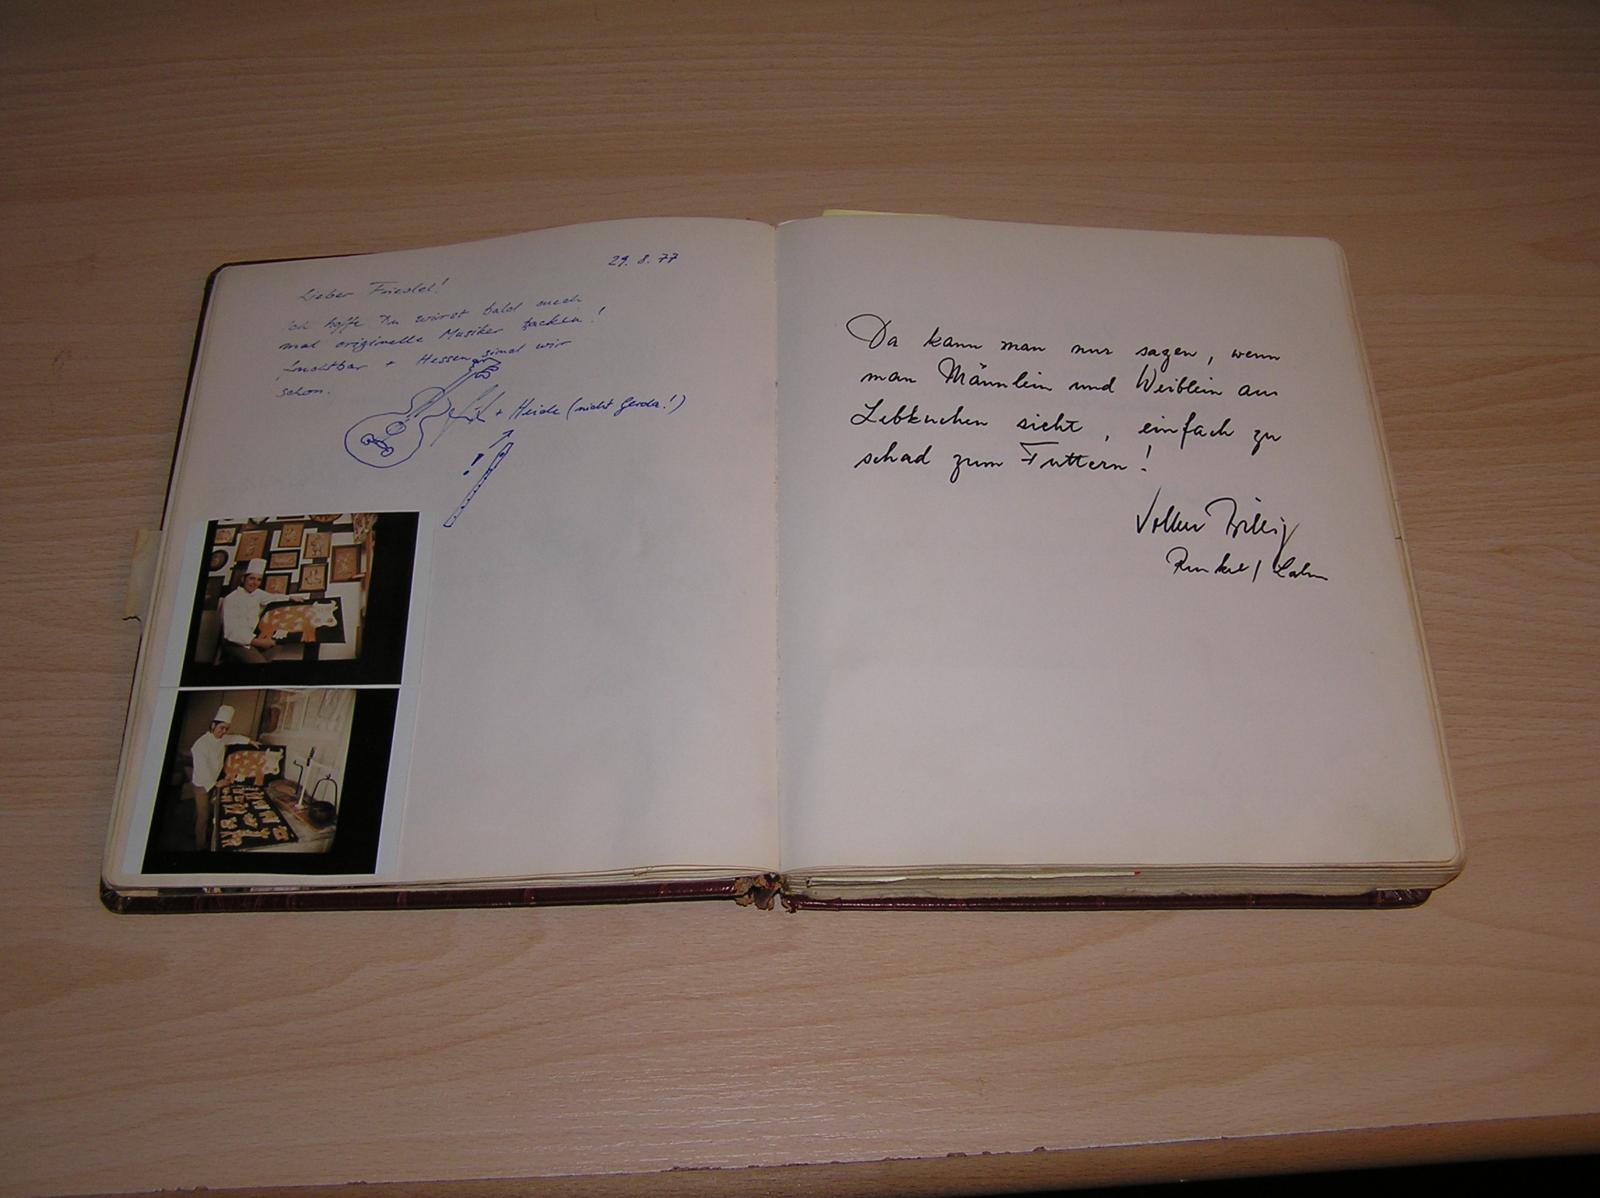 29. 8. 77
Lieber Friedel!
ich hoffe Du wirst bald auch
mal originelle Musiker backen!
Fruchtbar + Hessen sind wir
schon.
+ Heide (nicht Gerda!)
!
Da kann man nur sagen, wenn
man Männlein und Weiblein aus
Lebkuchen sieht, einfach zu
schad zum Futtern!
Volker
Runkel / Lahn